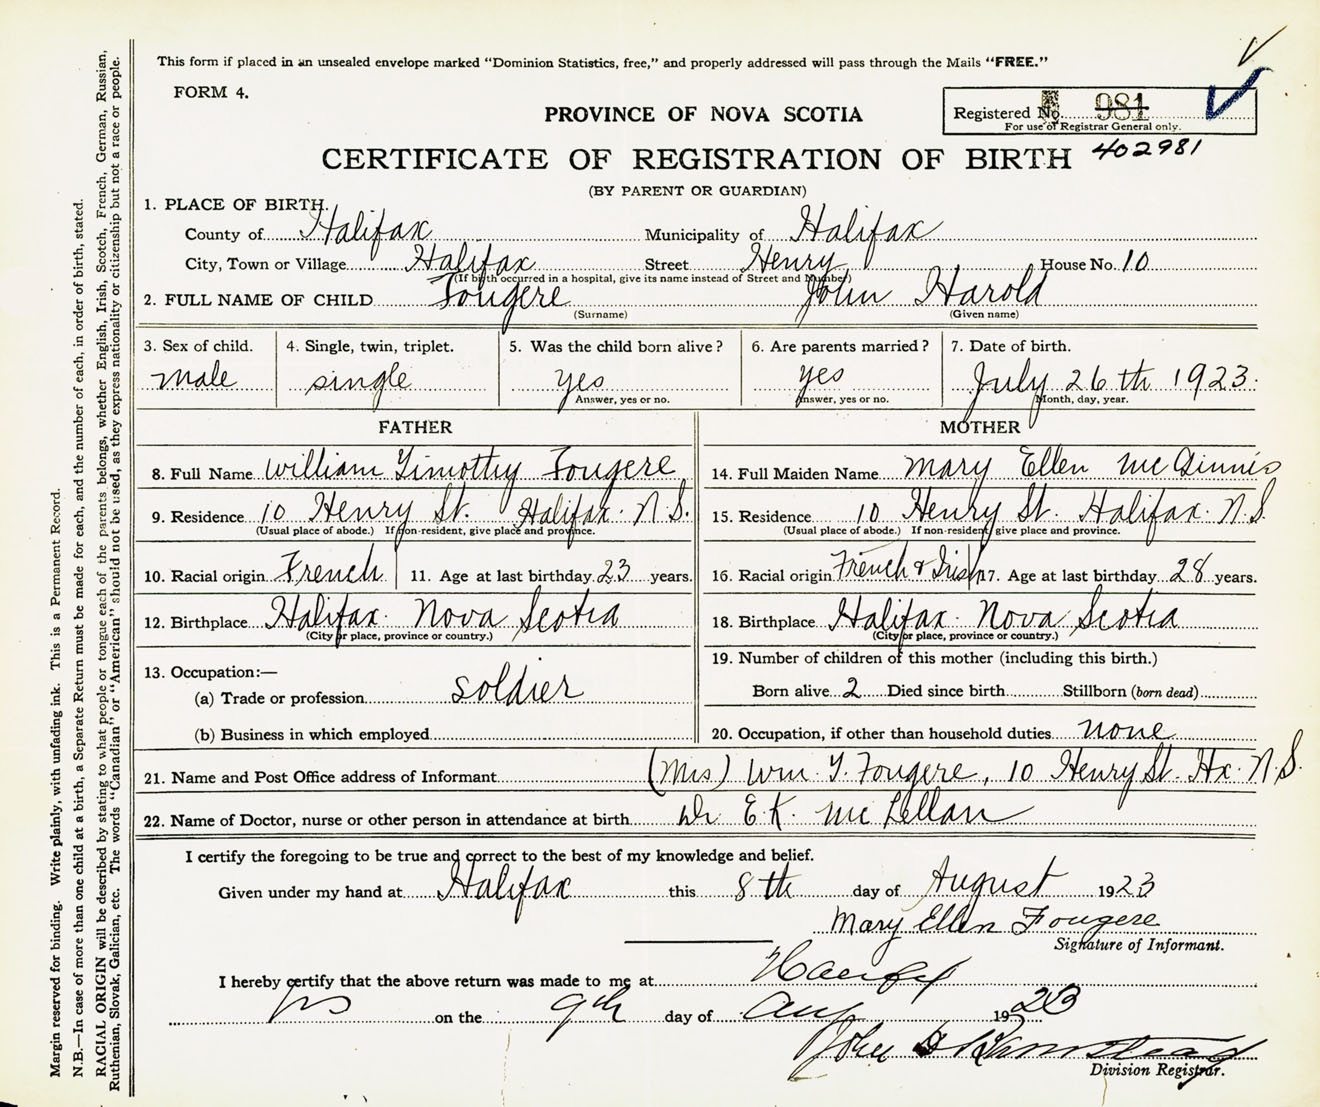 This form if placed in an unsealed envelope marked "Dominion Statistics, free," and properly addressed will pass through the Mails "FREE."
FORM 4.
PROVINCE OF NOVA SCOTIA
Registered No. 981
For use of Registrar General only.
CERTIFICATE OF REGISTRATION OF BIRTH 402981
(BY PARENT OR GUARDIAN)
1. PLACE OF BIRTH.
County of Halifax Municipality of Halifax
City, Town or Village Halifax Street Henry House No. 10
(If birth occurred in a hospital, give its name instead of Street and Number)
2. FULL NAME OF CHILD Fougere John Harold
(Surname) (Given name)
3. Sex of child. 4. Single, twin, triplet. 5. Was the child born alive? 6. Are parents married? 7. Date of birth.
male single yes yes July 26th 1923.
Answer, yes or no. Answer, yes or no. Month, day, year.
FATHER MOTHER
8. Full Name William Timothy Fougere 14. Full Maiden Name Mary Ellen McGinnis
9. Residence 10 Henry St. Halifax. N.S. 15. Residence 10 Henry St. Halifax. N.S
(Usual place of abode.) If non-resident, give place and province. (Usual place of abode.) If non-resident, give place and province.
10. Racial origin French 11. Age at last birthday 23 years. 16. Racial origin French & Irish 17. Age at last birthday 28 years.
12. Birthplace Halifax. Nova Scotia 18. Birthplace Halifax. Nova Scotia
(City or place, province or country.) (City or place, province or country.)
13. Occupation:— 19. Number of children of this mother (including this birth.)
(a) Trade or profession soldier Born alive 2 Died since birth Stillborn (born dead)
(b) Business in which employed 20. Occupation, if other than household duties none
21. Name and Post Office address of Informant (Mrs) Wm. T. Fougere, 10 Henry St. Hx. N.S.
22. Name of Doctor, nurse or other person in attendance at birth Dr E.K. McLellan
I certify the foregoing to be true and correct to the best of my knowledge and belief.
Given under my hand at Halifax this 8th day of August 1923
Mary Ellen Fougere
Signature of Informant.
I hereby certify that the above return was made to me at Halifax
NS on the 9th day of Aug 1923
John
Division Registrar.
Margin reserved for binding. Write plainly, with unfading ink. This is a Permanent Record.
N.B.—In case of more than one child at a birth, a Separate Return must be made for each, and the number of each, in order of birth, stated.
RACIAL ORIGIN will be described by stating to what people or tongue each of the parents belongs, whether English, Irish, Scotch, French, German, Russian,
Ruthenian, Slovak, Galician, etc. The words "Canadian" or "American" should not be used, as they express nationality or citizenship but not a race or people.